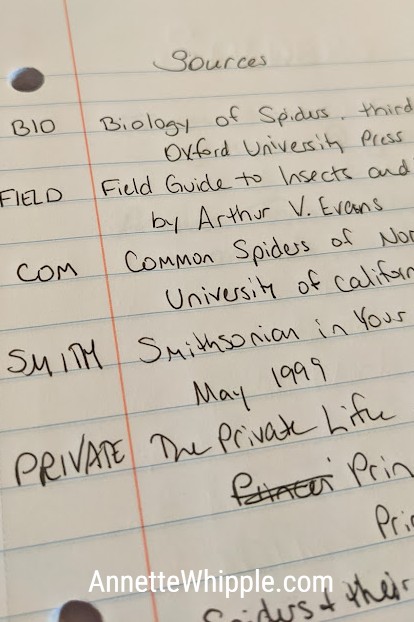 Sources
BIO Biology of Spiders. third
Oxford University Press
FIELD Field Guide to Insects and
by Arthur V. Evans
COM Common Spiders of Nor
University of Californ
SMITH Smithsonian in Your
May 1999
PRIVATE The Private Life
Prin
Prin
Spiders + their
AnnetteWhipple.com